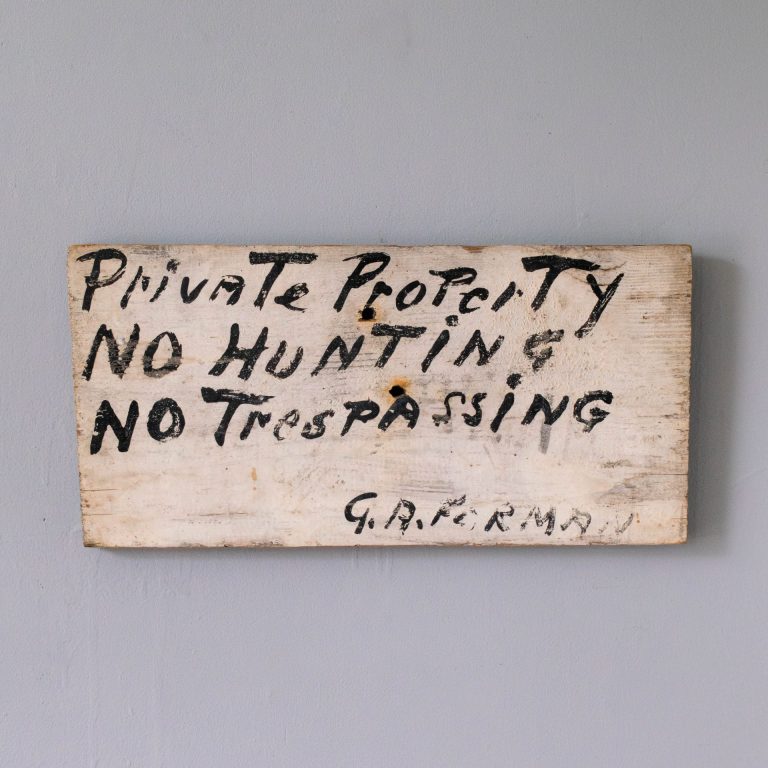 Private Property
NO HUNTING
NO TresPASSING
G.A. FORMAN